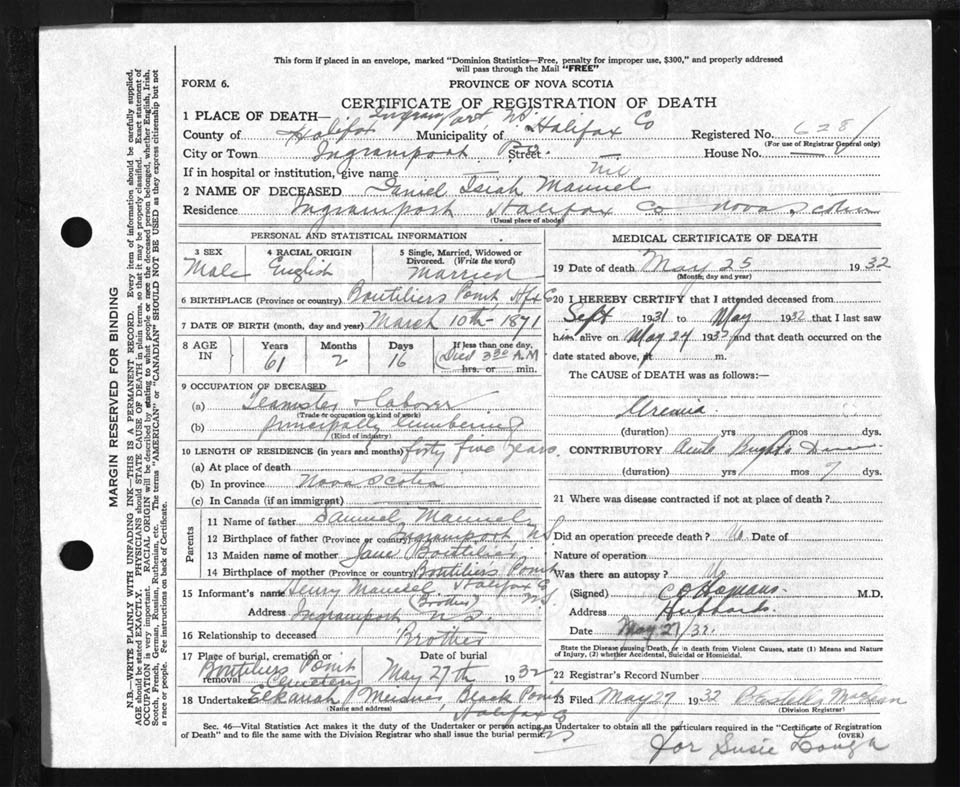 This form if placed in an envelope, marked "Dominion Statistics—Free, penalty for improper use, $300," and properly addressed
will pass through the Mail "FREE"
FORM 6.
PROVINCE OF NOVA SCOTIA
CERTIFICATE OF REGISTRATION OF DEATH
1 PLACE OF DEATH— Ingramport NS
County of Halifax Municipality of Halifax Co Registered No. 6281
(For use of Registrar General only)
City or Town Ingramport Street House No.
If in hospital or institution, give name — nil
2 NAME OF DECEASED Daniel Isiah Manuel
Residence Ingramport Halifax Co Nova Scotia
(Usual place of abode)
PERSONAL AND STATISTICAL INFORMATION
3 SEX Male
4 RACIAL ORIGIN English
5 Single, Married, Widowed or Divorced. (Write the word) Married
6 BIRTHPLACE (Province or country) Boutiliers Point Hfx Co
7 DATE OF BIRTH (month, day and year) March 10th - 1871
8 AGE IN Years 61 Months 2 Days 16 If less than one day, hrs. or min. Died 3 30 A.M
9 OCCUPATION OF DECEASED
(a) Teamster & Laborer
(Trade or occupation or kind of work)
(b) principally lumbering
(Kind of industry)
10 LENGTH OF RESIDENCE (in years and months) forty five years.
(a) At place of death
(b) In province Nova Scotia
(c) In Canada (if an immigrant)
Parents
11 Name of father Samuel Manuel
12 Birthplace of father (Province or country) Ingramport NS
13 Maiden name of mother Jane Boutilier
14 Birthplace of mother (Province or country) Boutiliers Point
Halifax Co
15 Informant's name Henry Manuel
(Brother) N.S.
Address Ingramport N.S.
16 Relationship to deceased Brother
17 Place of burial, cremation or removal Boutiliers Point Cemetery
Date of burial May 27th 1932
18 Undertaker Elkanah Meisner Black Point
(Name and address) Halifax Co
NS
MEDICAL CERTIFICATE OF DEATH
19 Date of death May 25 1932
(Month, day and year)
20 I HEREBY CERTIFY that I attended deceased from
Sept 1931 to May 1932 that I last saw
him alive on May 24 1932 and that death occurred on the
date stated above, at m.
The CAUSE OF DEATH was as follows:—
Uremia
(duration) yrs mos dys.
CONTRIBUTORY Acute Bright's
(duration) yrs mos 7 dys.
21 Where was disease contracted if not at place of death?
Did an operation precede death? No Date of
Nature of operation
Was there an autopsy? No
(Signed) M.D.
Address Hubbards
Date May 27/32.
State the Disease causing Death, or in death from Violent Causes, state (1) Means and Nature
of Injury, (2) whether Accidental, Suicidal or Homicidal.
22 Registrar's Record Number
23 Filed May 27 1932 MacLean
(Division Registrar)
Sec. 46—Vital Statistics Act makes it the duty of the Undertaker or person acting as Undertaker to obtain all the particulars required in the "Certificate of Registration
of Death" and to file the same with the Division Registrar who shall issue the burial permit.
(OVER)
for Susie Lough
MARGIN RESERVED FOR BINDING
N.B.—WRITE PLAINLY WITH UNFADING INK—THIS IS A PERMANENT RECORD. Every item of information should be carefully supplied.
AGE should be stated EXACTLY. PHYSICIANS should STATE CAUSE OF DEATH in plain terms, so that it may be properly classified. Exact statement of
OCCUPATION is very important. RACIAL ORIGIN will be described by stating to what people or race the deceased person belonged, whether English, Irish,
Scotch, French, German, Russian, Ruthenian, etc. The terms "AMERICAN" or "CANADIAN" SHOULD NOT BE USED as they express citizenship but not
a race or people. Fee instructions on back of Certificate.